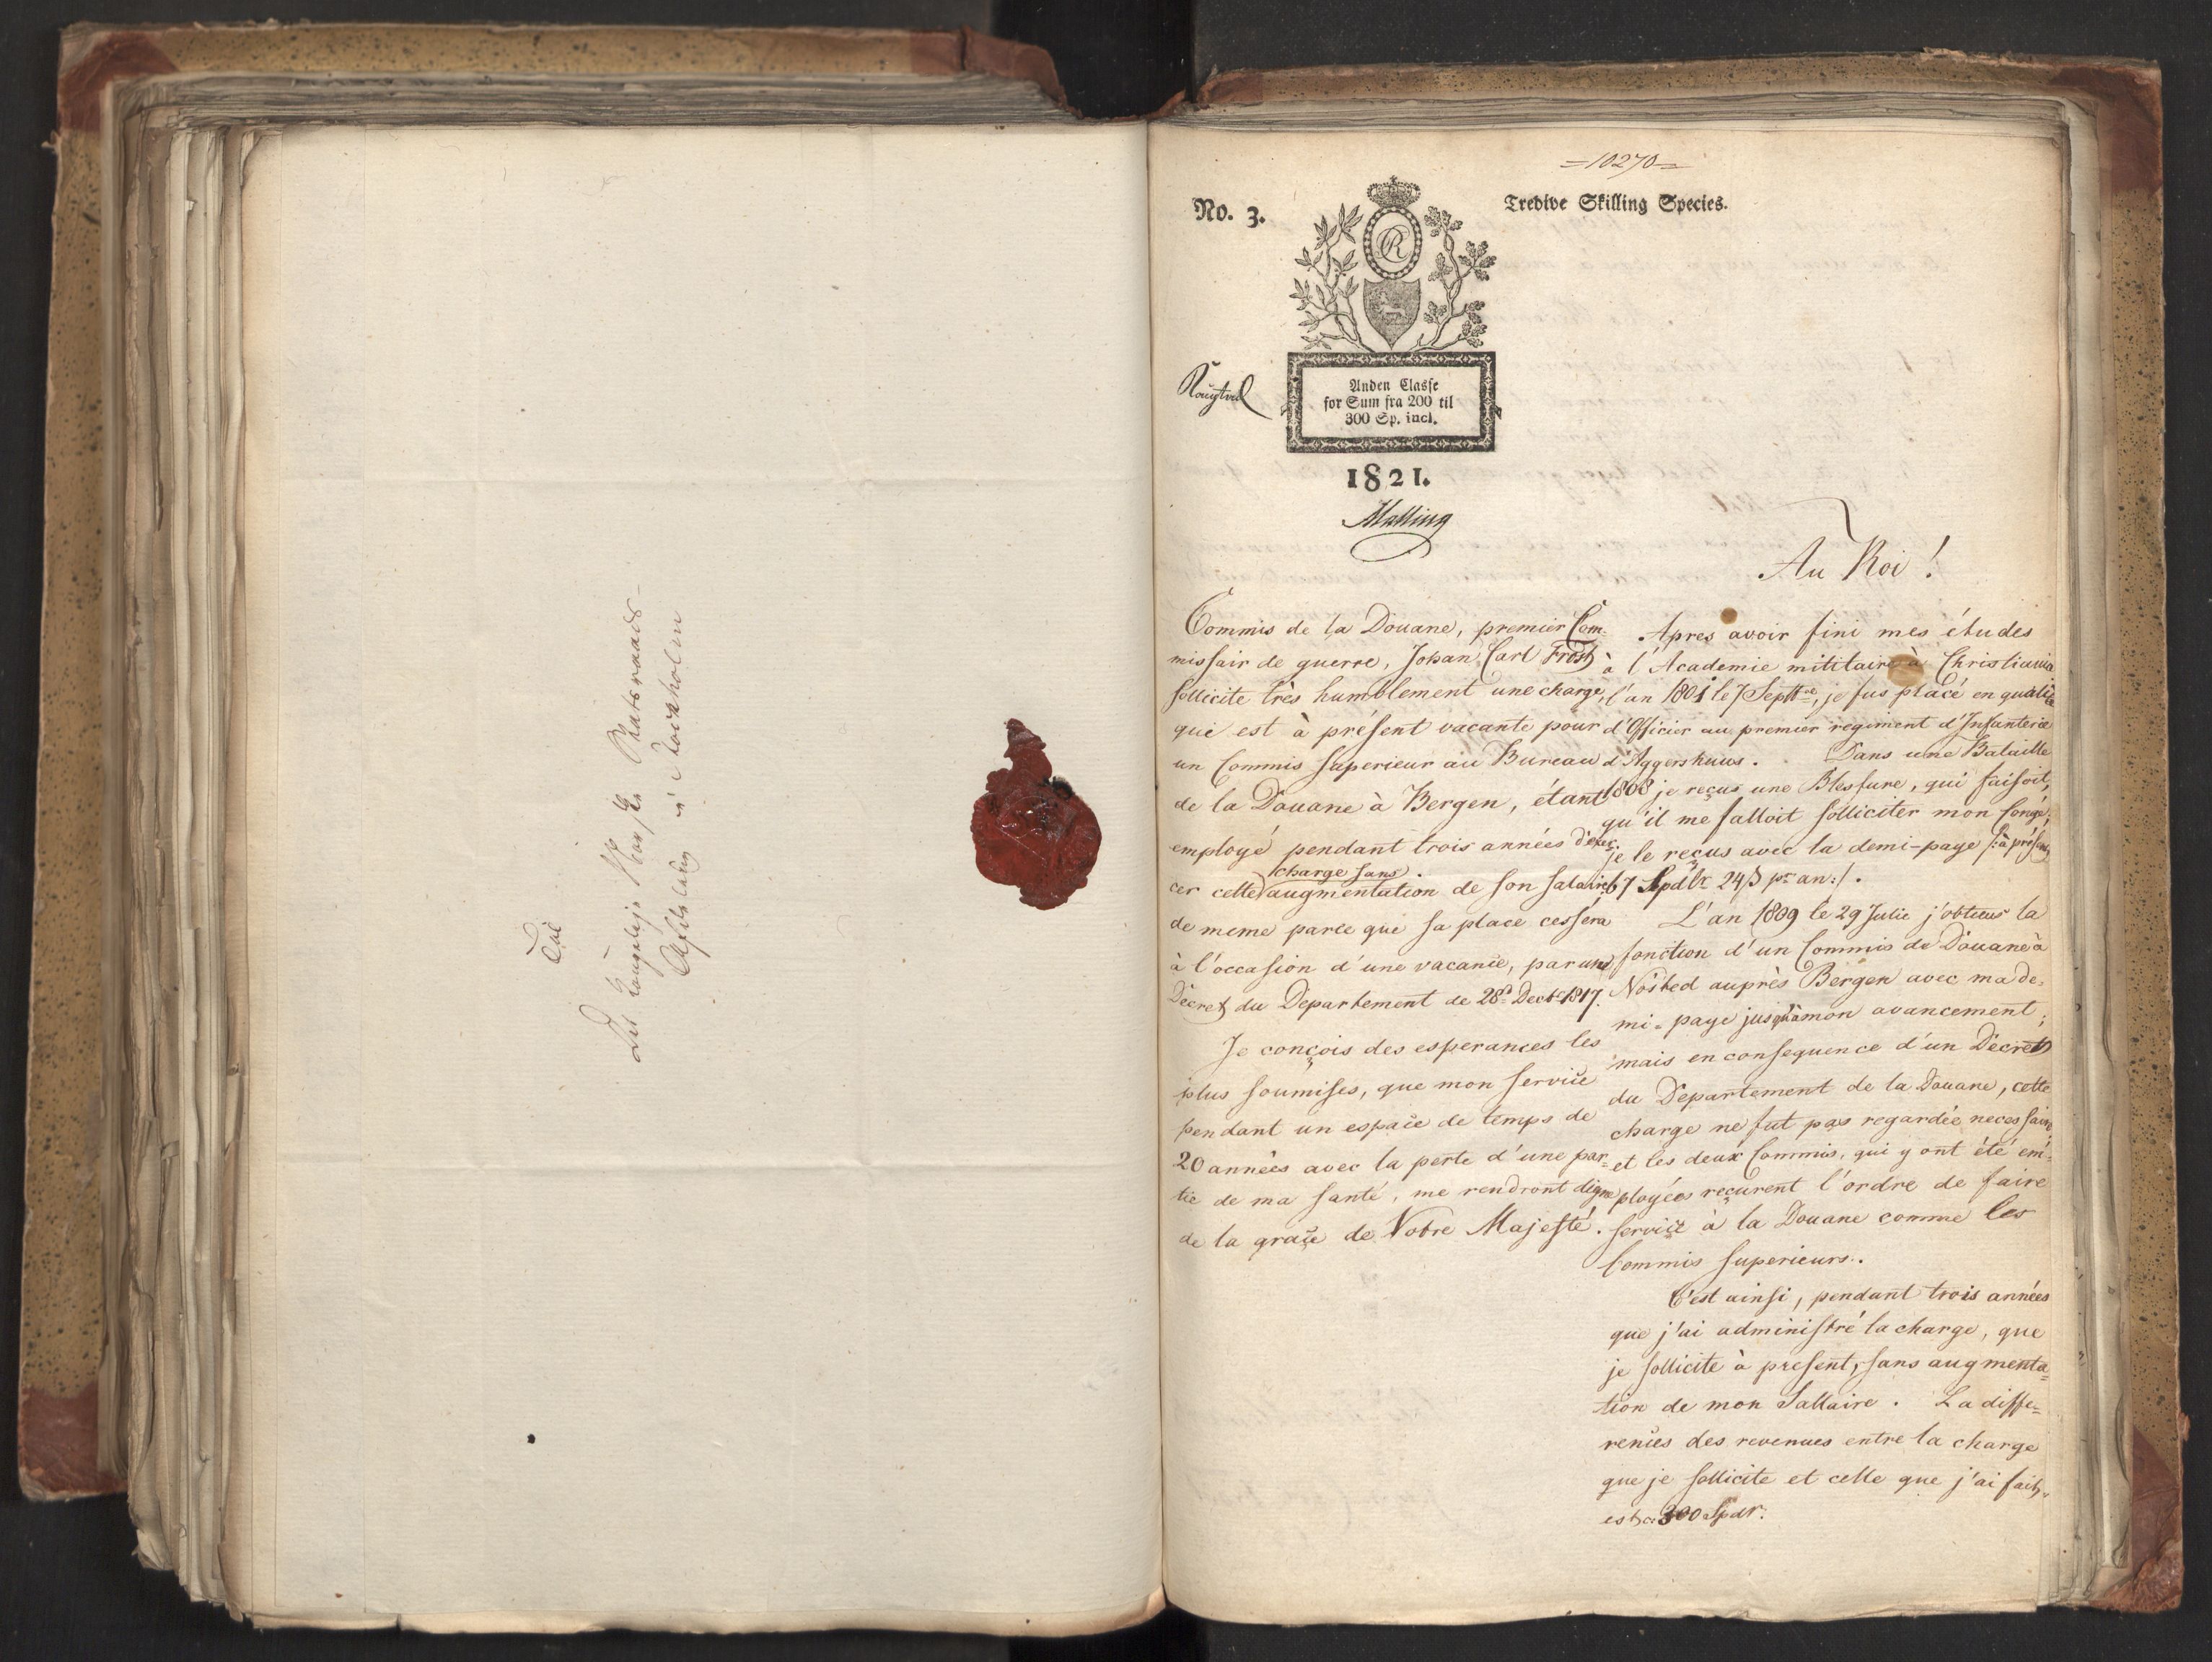 Til
Det Kongelige Norske Statsraads-
Afdeling i Stockholm
=10270=
No. 3.
Tredive Skilling Species.
Anden Classe
for Sum fra 200 til
300 Sp. incl.
1821.
Malling
Au Roi!
Commis de la Douane, premier Com-
missair de guerre, Johan Carl Frost
sollicite très humblement une charge,
qui est à présent vacante pour
un Commis superieur au Bureau
de la Douane à Bergen, étant
employé pendant trois années d'exer-
charge sans
cer cette augmentation de son salaire
de meme parce que sa place cessera
à l'occasion d'une vacance, par une
Décret du Departement de 28d Decbr 1817.
Je conçois des esperances les
plus soumises, que mon service
pendant un espace de temps de
20 années avec la perte d'une par-
tie de ma santé, me rendront digne
de la grace de Votre Majesté.
Apres avoir fini mes études
à l'Academie militaire à Christiania
l'an 1801 le 7 Septbre, je fus placé en qualité
d'Officier au premier regiment d'Infanterie
d'Aggershuus. Dans une Bataille
1808 je reçus une Blessure, qui faisoit,
qu'il me falloit solliciter mon Congé;
je le reçus avec la demi-paye /: à présent
67 Spdlr 24 β pr an :/.
L'an 1809 le 29 Julie j'obtieus la
fonction d'un Commis de Douane à
Nøsted auprès Bergen avec ma de-
mi-paye jusqu'à mon avancement;
mais en consequence d'un Décret
du Departement de la Douane, cette
charge ne fut pas regardée necessaire
et les deux Commis, qui y ont été em-
ployées reçurent l'ordre de faire
service à la Douane comme les
Commis superieurs.
C'est ainsi, pendant trois années
que j'ai administré la charge, que
je sollicite à present, sans augmenta-
tion de mon Sallaire. La diffe-
rences des revenues entre la charge
que je sollicite et celle que j'ai fait,
est ca 300 Spdr: